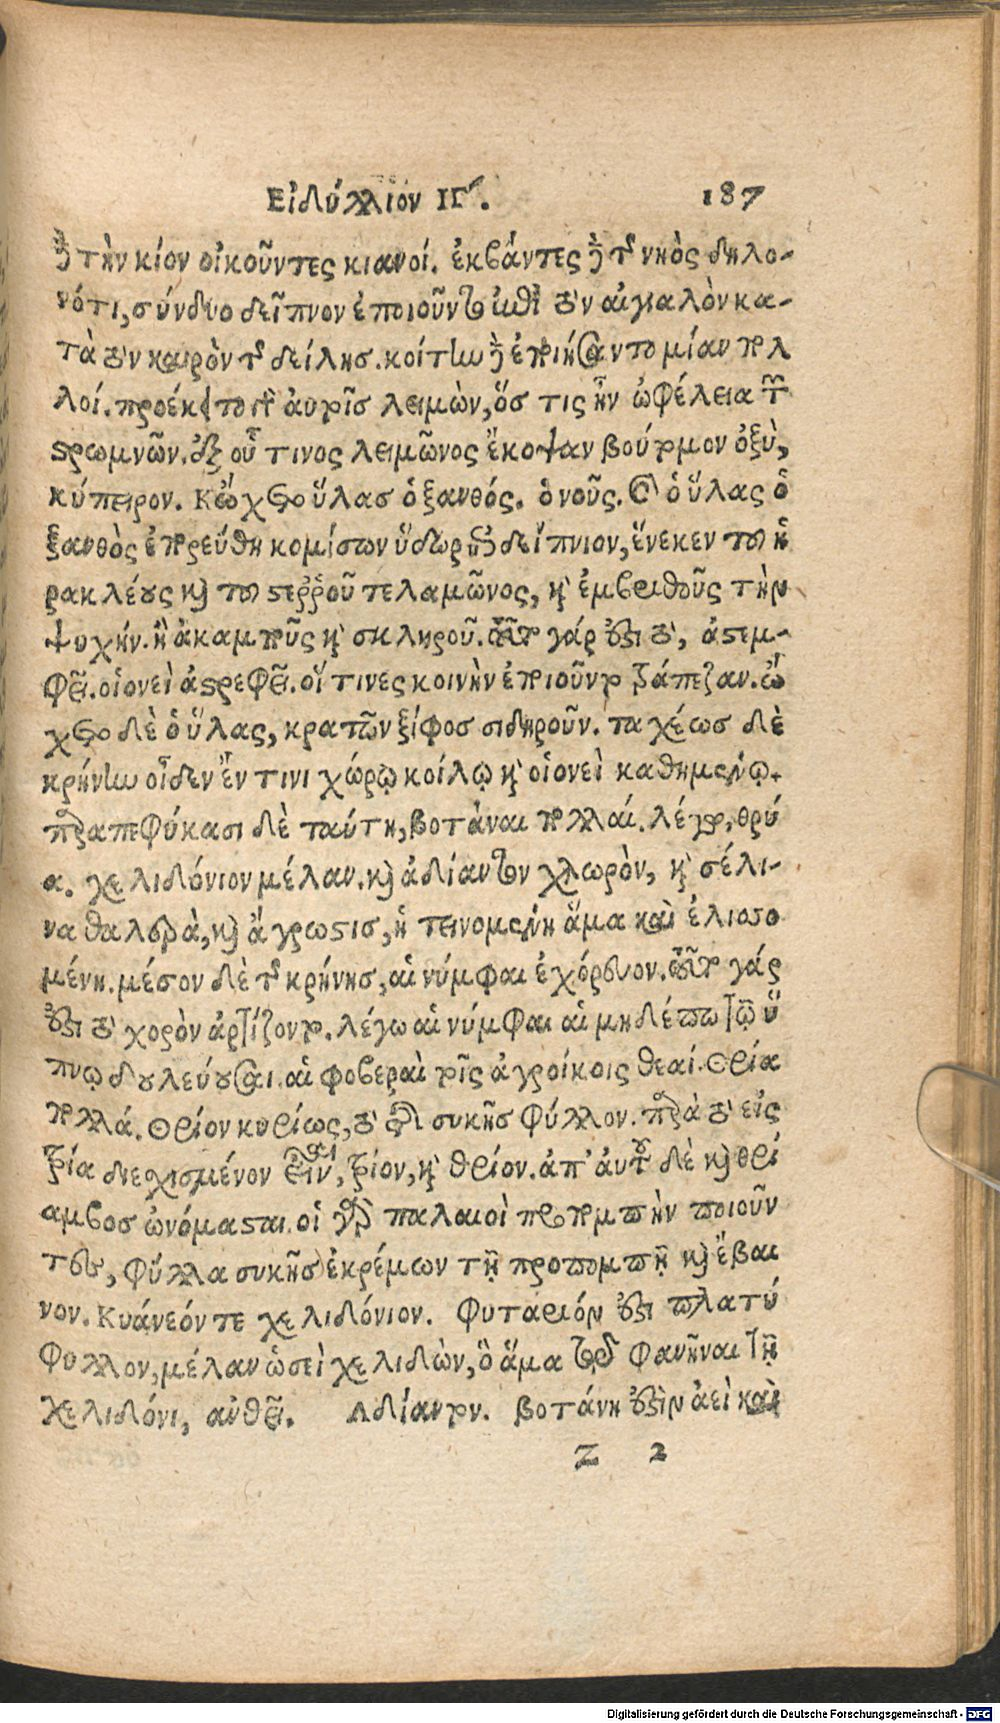 Εἰδύλλιον ΙΓ΄. 187
δὲ τὴν κίον οἰκοῦντες κιανοί. ἐκβάντες δὲ τῆς νηὸς δηλο-
νότι, σύνδυο δεῖπνον ἐποιοῦντο ἐπὶ τὸν αἰγιαλὸν κα-
τὰ τὸν καιρὸν τῆς δείλης. κοίτην δὲ ἐποιήσαντο μίαν πολ
λοί. προέκειτο γὰρ αὐτοῖς λειμὼν, ὅς τις ἦν ὠφέλεια τῶν
στρωμνῶν. ἐξ οὗ τινος λειμῶνος ἔκοψαν βούτομον ὀξὺ,
κύπειρον. Κᾤχετο ὕλας ὁ ξανθός. ὁ νοῦς. καὶ ὁ ὕλας ὁ
ξανθὸς ἐπορεύθη κομίσων ὕδωρ ἐπιδείπνιον, ἕνεκεν τοῦ ἡ
ρακλέους καὶ τοῦ στερροῦ τελαμῶνος, καὶ ἐμβριθοῦς τὴν
ψυχήν. ἢ ἀκαμποῦς καὶ σκληροῦ. τοιοῦτον γάρ ἐστι τὸ, ἀστεμ-
φεῖ. οἱονεὶ ἀστρεφεῖ. οἵ τινες κοινὴν ἐποιοῦντο τράπεζαν. ᾤ
χετο δὲ ὁ ὕλας, κρατῶν ξίφος σιδηροῦν. ταχέως δὲ
κρήνην οἶδεν ἔν τινι χώρῳ κοίλῳ καὶ οἱονεὶ καθημένῳ.
παραπεφύκασι δὲ ταύτῃ, βοτάναι πολλαί. λέγω, θρύ
α. χελιδόνιον μέλαν. καὶ ἀδίαντον χλωρὸν, καὶ σέλι-
να θαλερὰ, καὶ ἄγρωστις, ἡ τεινομένη ἅμα καὶ ἑλισσο
μένη. μέσον δὲ τῆς κρήνης, αἱ νύμφαι ἐχόρευον. τοιοῦτον γάρ
ἐστι τὸ χορὸν ἀρτίζοντο. λέγω αἱ νύμφαι αἱ μηδέπω τῷ ὕ
πνῳ δουλεύουσαι. αἱ φοβεραὶ τοῖς ἀγροίκοις θεαί. Θρία
πολλά. Θρίον κυρίως, τὸ τῆς συκῆς φύλλον. παρὰ τὸ εἰς
τρία διεσχισμένον εἶναι, τρίον, καὶ θρίον. ἀπ᾽ αὐτοῦ δὲ καὶ θρί
αμβος ὠνόμασται. οἱ γὰρ παλαιοὶ προπομπὴν ποιοῦν
τες, φύλλα συκῆς ἐκρέμων τῇ προπομπῇ καὶ ἔβαι
νον. Κυάνεόν τε χελιδόνιον. Φυτάριόν ἐστι πλατύ
φυλλον, μέλαν ὡσεὶ χελιδὼν, ὃ ἅμα τῷ φανῆναι τῇ
χελιδόνι, ἀνθεῖ. Ἀδίαντον. βοτάνη ἐστὶν ἀεὶ καὶ
Z 2
Digitalisierung gefördert durch die Deutsche Forschungsgemeinschaft - DFG